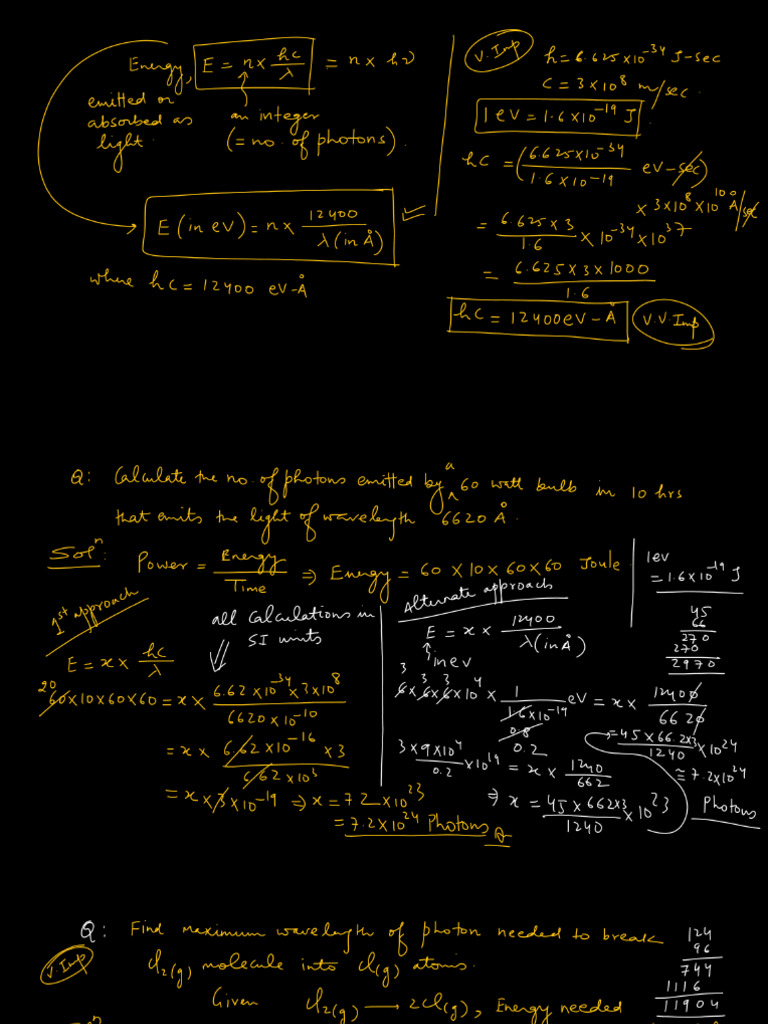 Energy, E = n × hc/λ = n × hν
emitted or absorbed as light.
an integer
(= no. of photons).
E (in eV) = n × 12400/λ(in Å)
where hc = 12400 eV-Å
V. Imp
h = 6.625×10⁻³⁴ J-sec
c = 3×10⁸ m/sec.
1 eV = 1.6×10⁻¹⁹ J
hc = (6.625×10⁻³⁴/1.6×10⁻¹⁹ eV-sec)
× 3×10⁸×10¹⁰ Å/sec
= 6.625×3/1.6 × 10⁻³⁴×10³⁷
= 6.625×3×1000/1.6
hc = 12400 eV-Å
V.V. Imp
Q: Calculate the no. of photons emitted by a 60 watt bulb in 10 hrs
that emits the light of wavelength 6620 Å.
Solⁿ: Power = Energy/Time ⇒ Energy = 60 × 10 × 60 × 60 Joule
1 eV
= 1.6×10⁻¹⁹ J
1st approach
all calculations in
SI units
E = x × hc/λ
20
60×10×60×60 = x × 6.62×10⁻³⁴×3×10⁸/6620×10⁻¹⁰
= x × 6.62×10⁻¹⁶/6.62×10³ × 3
= x × 3×10⁻¹⁹ ⇒ x = 72×10²³
= 7.2×10²⁴ Photons
Alternate approach
E = x × 12400/λ(in Å)
in eV
3 3 3 4
6×6×6×10⁴ × 1/1.6×10⁻¹⁹ eV = x × 12400/6620
0.8
0.2
3×9×10⁴/0.2 × 10¹⁹ = x × 1240/662
⇒ x = 45×662×3/1240 × 10²³
= 45×66.2×3/1240 × 10²⁴
≅ 7.2×10²⁴
Photons
45
66
270
270
2970
Q: Find maximum wavelength of photon needed to break
V. Imp
Cl₂(g) molecule into Cl(g) atoms.
Given Cl₂(g) ⟶ 2Cl(g), Energy needed
124
96
744
1116
11904